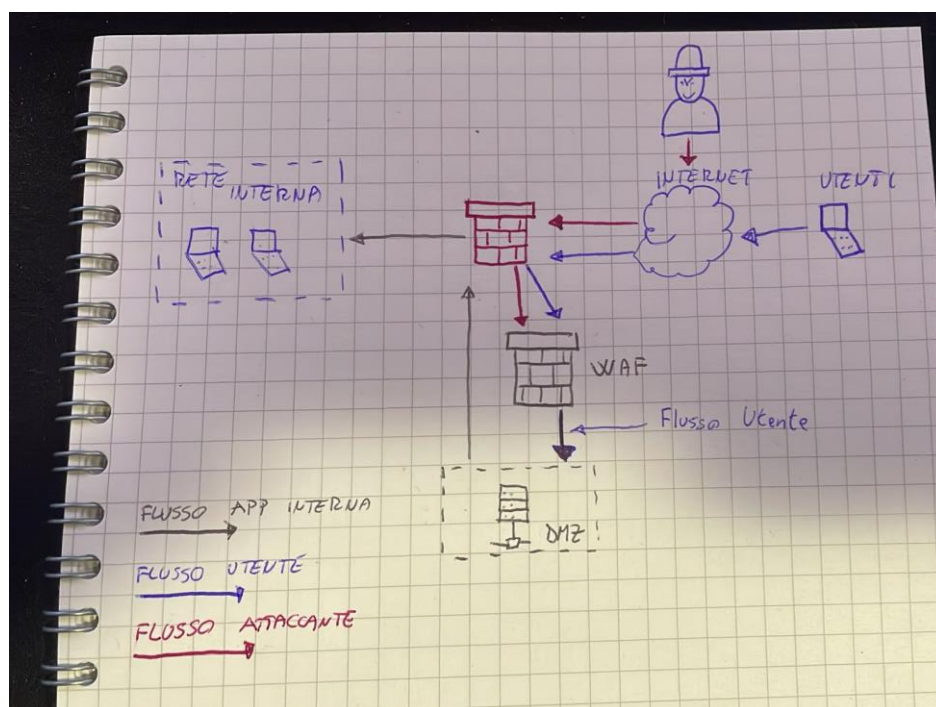 INTERNET
UTENTI
RETE
INTERNA
WAF
Flusso Utente
DMZ
FLUSSO APP INTERNA
FLUSSO UTENTE
FLUSSO ATTACCANTE